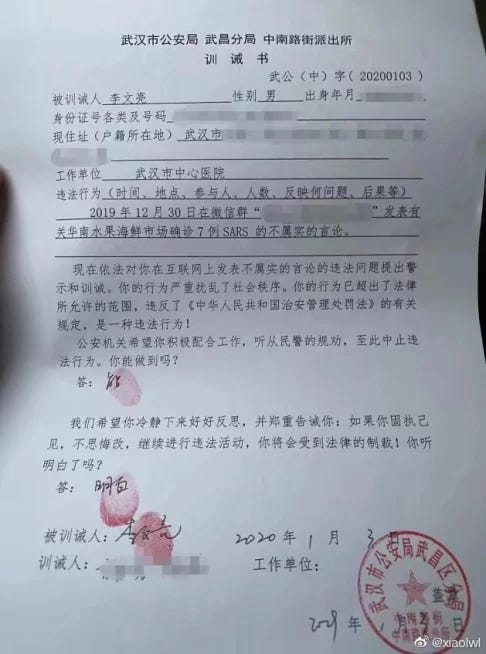 武汉市公安局 武昌分局 中南路街派出所
训 诫 书
武公（中）字（20200103）
被训诫人 李文亮 性别 男 出身年月
身份证号各类及号码
现住址（户籍所在地） 武汉市
工作单位 武汉市中心医院
违法行为（时间、地点、参与人、人数、反映何问题、后果等）
2019年12月30日在微信群“ ”发表有
关华南水果海鲜市场确诊7例SARS的不属实的言论。
现在依法对你在互联网上发表不属实的言论的违法问题提出警
示和训诫。你的行为严重扰乱了社会秩序。你的行为已超出了法律
所允许的范围，违反了《中华人民共和国治安管理处罚法》的有关
规定，是一种违法行为！
公安机关希望你积极配合工作，听从民警的规劝，至此中止违
法行为。你能做到吗？
答：能
我们希望你冷静下来好好反思，并郑重告诫你：如果你固执己
见，不思悔改，继续进行违法活动，你将会受到法律的制裁！你听
明白了吗？
答：明白
被训诫人：李文亮 2020年1月3日
训诫人： 工作单位：
武汉市公安局武昌区分局
中南路街
派出所
年1月3日
@xiaolwl